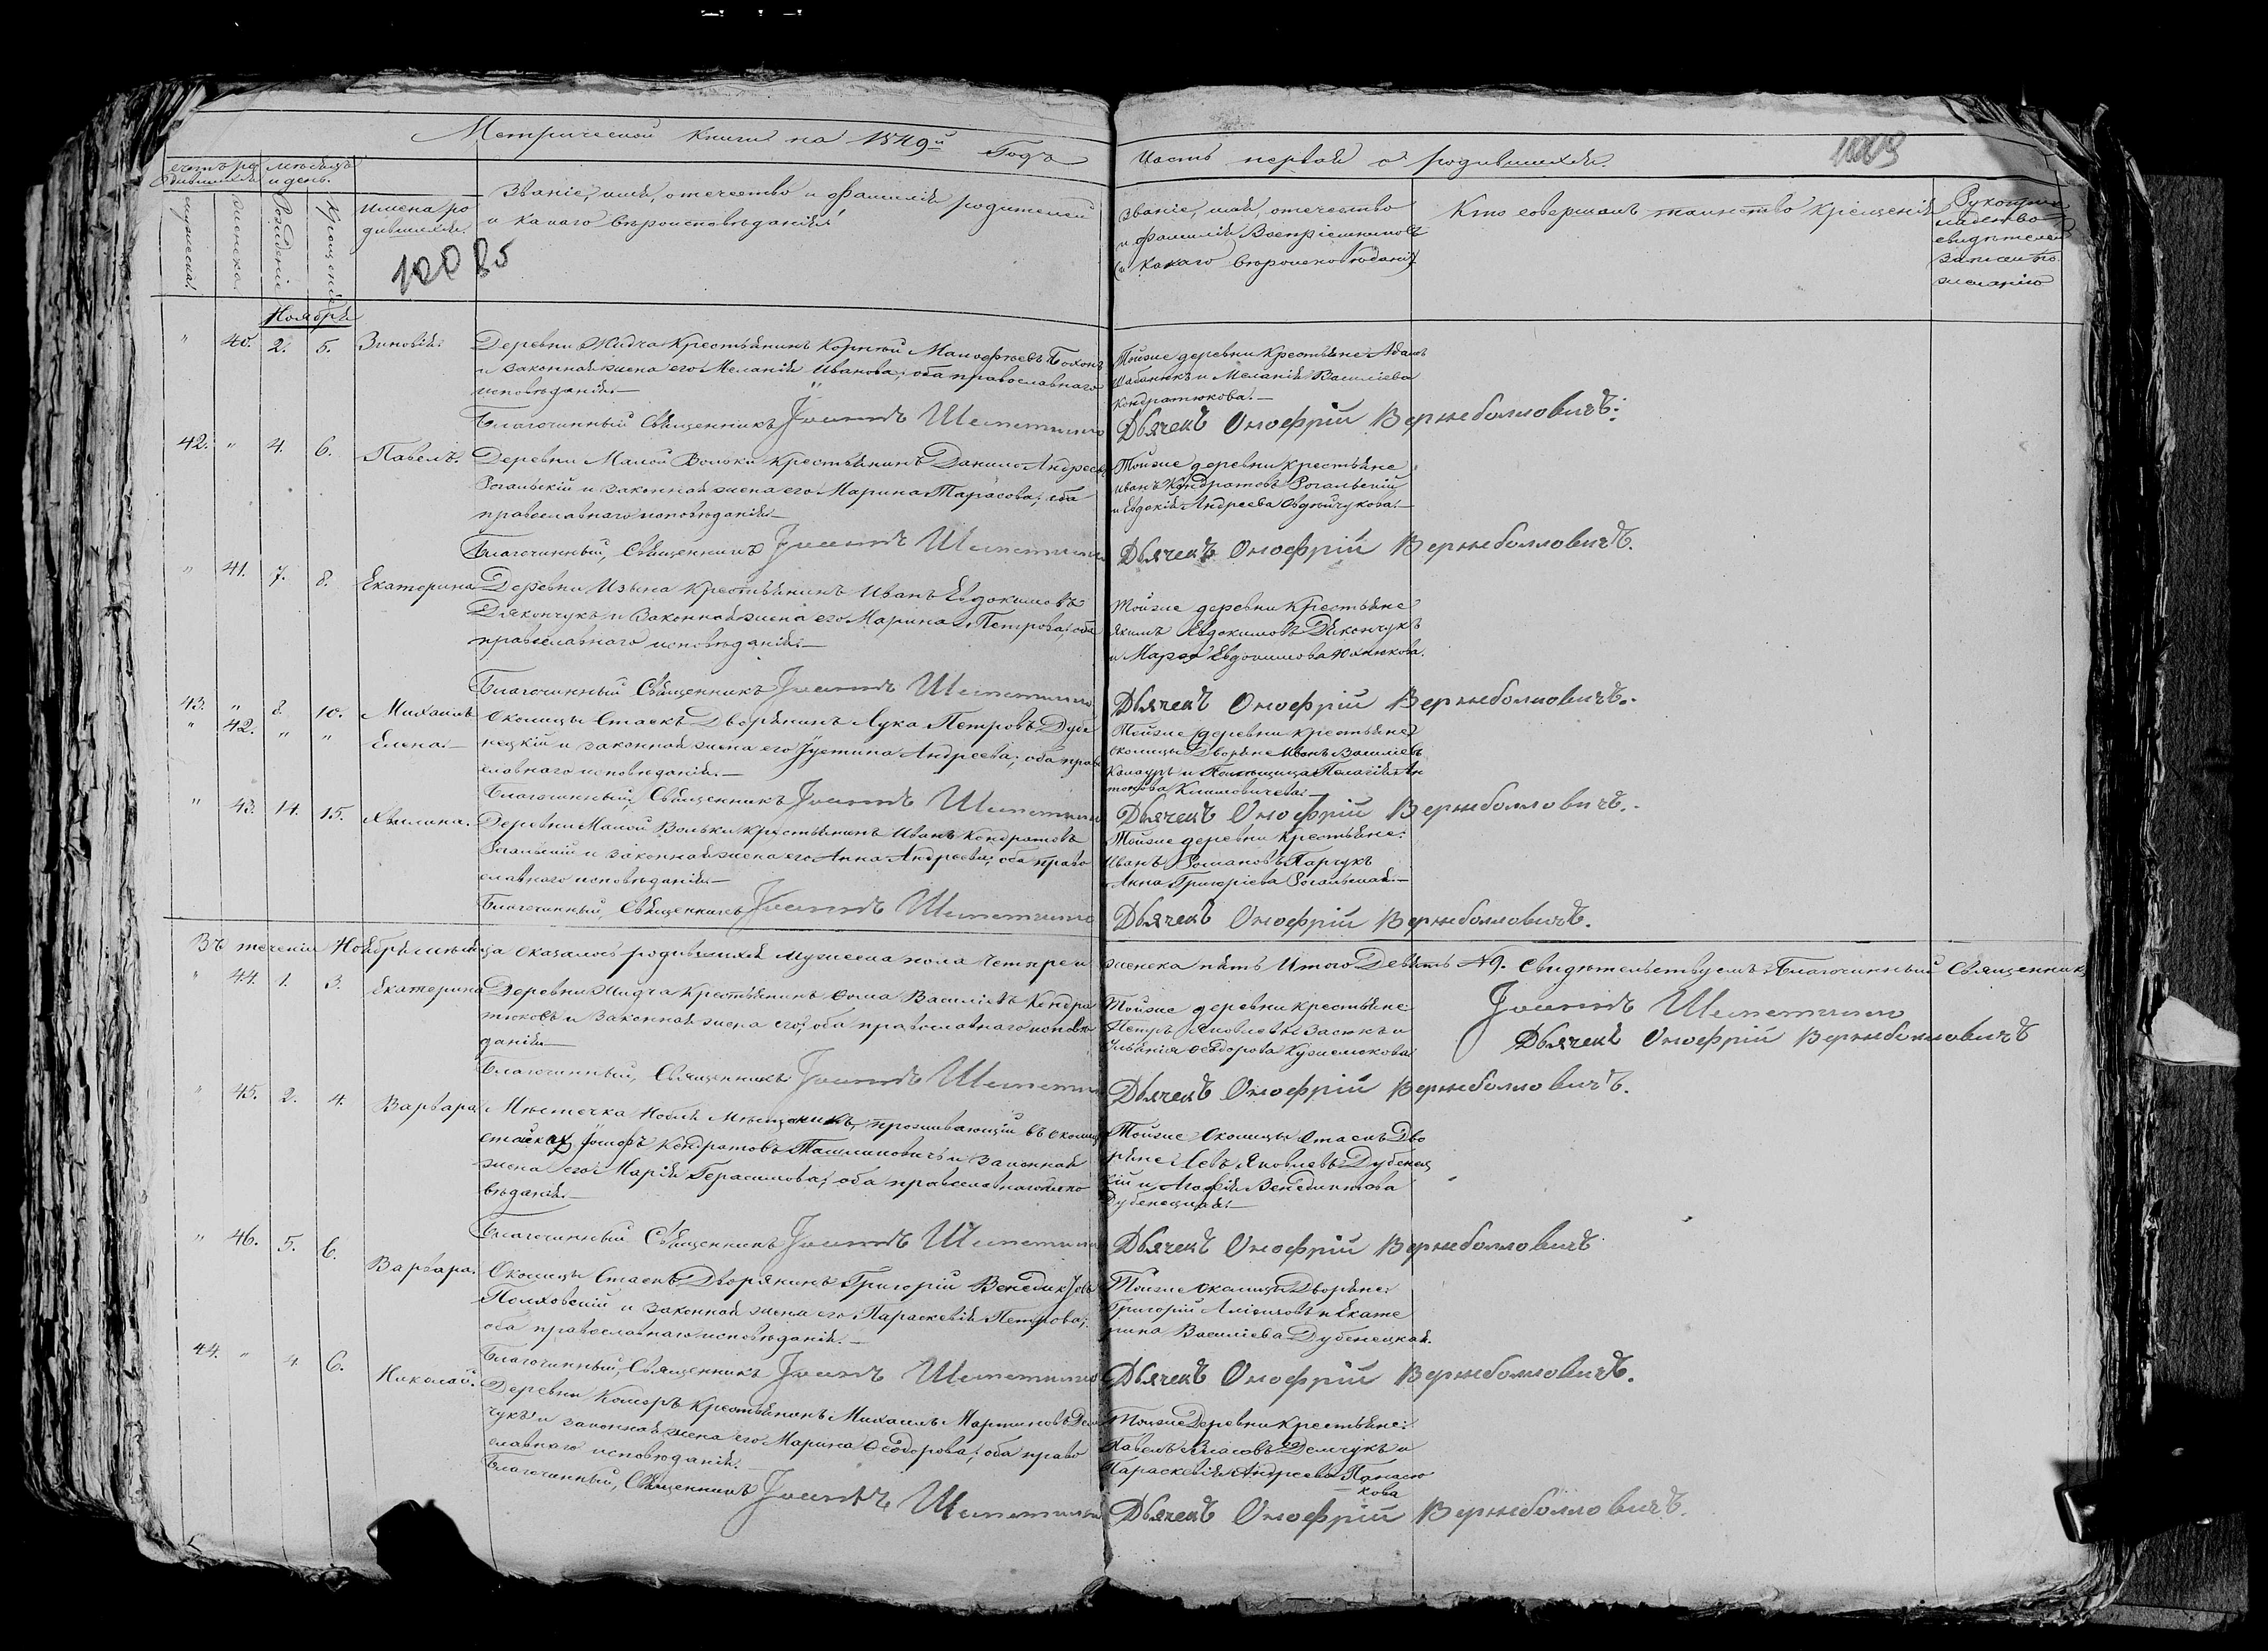 Метрической книги на 1849й Годъ
Часть первая о родившихся.
1009
Счетъ ро
дившихся
мѣсяцъ
и день.
мужеска.
женска.
Рожденія
Крещенія
Имена ро
дившихся.
Званіе, имя, отечество и фамилія родителей
и какаго вѣроисповѣданія!
10085
Званіе, имя, отечество
и фамилія Воспріемниковъ
и какаго вѣроисповѣданія
Кто совершалъ таинство крещенія
Рукопри
кладство
свидѣтелей
записи по
желанію
Ноября
" 40. 2. 5. Зиновія. Деревни Жидча Крестьянинъ Корнѣй
и законная жена его Меланія Иванова; оба православнаго
исповѣданія.—
Тойже деревни Крестьяне Адамъ
и Меланія Василіева
Кондратюкова.—
Благочинный Священникъ Іоаннъ
Дьячекъ Онофрій Вержболловичъ.
42. " 4. 6. Павелъ. Деревни Малой Вольки Крестьянинъ Данило Андреевъ
Рогальскій и законная жена его Марина Тарасова; оба
православнаго исповѣданія.—
Тойже деревни крестьяне
Иванъ Кондратовъ Рогальскій
и Евдокія Андреева
Благочинный, Священникъ Іоаннъ
Дьячекъ Онофрій Вержболловичъ.
" 41. 7. 8. Екатерина Деревни Изына Крестьянинъ Иванъ Евдокимовъ
Дякончукъ и законная жена его Марина Петрова; оба
православнаго исповѣданія.—
Тойже деревни Крестьяне
Якимъ Евдокимовъ Дякончукъ
и Марѳа Евдокимова
Благочинный Священникъ Іоаннъ
Дьячекъ Онофрій Вержболловичъ.
43. " 8. 10. Михаилъ
" 42. " " Елена.—
Околицы Стаскъ Дворянинъ Лука Петровъ Дубе
нецкій и законная жена его Іустина Андреева; оба право
славнаго исповѣданія.—
Тойже деревни крестьяне
околицы Дворяне Иванъ Василіевъ
и Помѣщица Пелагія Ан
тонова Климовичева.—
Благочинный Священникъ Іоаннъ
Дьячекъ Онофрій Вержболловичъ.
" 43. 14. 15. Акилина. Деревни Малой Вольки Крестьянинъ Иванъ Кондратовъ
Рогальскій и законная жена его Анна Андреева; оба право
славнаго исповѣданія.—
Тойже деревни Крестьяне:
Иванъ Романовъ Парчукъ
Анна Григоріева Рогальская.—
Благочинный, Священникъ Іоаннъ
Дьячекъ Онофрій Вержболловичъ.
Въ теченіи Ноября мѣсяца оказалось родившихся мужеска пола четыре и женска пять Итого Девять №9. Свидѣтельствуемъ: Благочинный Священникъ
Іоаннъ
Дьячекъ Онофрій Вержболловичъ
" 44. 1. 3. Екатерина Деревни Жидча Крестьянинъ Ѳома Василіевъ Кондра
тюковъ и законная жена его; оба православнаго исповѣ
данія.—
Тойже деревни крестьяне:
Петръ Яковлевъ и
Ѳеодорова
Благочинный, Священникъ Іоаннъ
Дьячекъ Онофрій Вержболловичъ.
" 45. 2. 4. Варвара. Мѣстечка Нобля Мѣщанинъ, проживающій въ околицѣ
Стаскахъ Іосифъ Кондратовъ и законная
жена его Марія Герасимова; оба православнаго испо
вѣданія.—
Тойже Околицы Стаскъ Дво
ряне: Левъ Яковлевъ Дубенец
кій и Венедиктова
Дубенецкая.—
Благочинный Священникъ Іоаннъ
Дьячекъ Онофрій Вержболловичъ
" 46. 5. 6. Варвара. Околицы Стаскъ Дворянинъ Григорій Венедиктовъ
Поляховскій и законная жена его Параскевія Петрова;
оба православнаго исповѣданія.—
Тойже околицы Дворяне:
Григорій и Екате
рина Василіева Дубенецкая.
Благочинный, Священникъ Іоаннъ
Дьячекъ Онофрій Вержболловичъ.
44. " 4. 6. Николай. Деревни Коморъ Крестьянинъ Михаилъ Мартиновъ Дем
чукъ и законная жена его Марина Ѳеодорова; оба право
славнаго исповѣданія.
Тойже Деревни Крестьяне:
Павелъ Власовъ Демчукъ и
Параскевія Андреева Панасю
кова
Благочинный, Священникъ Іоаннъ
Дьячекъ Онофрій Вержболловичъ.